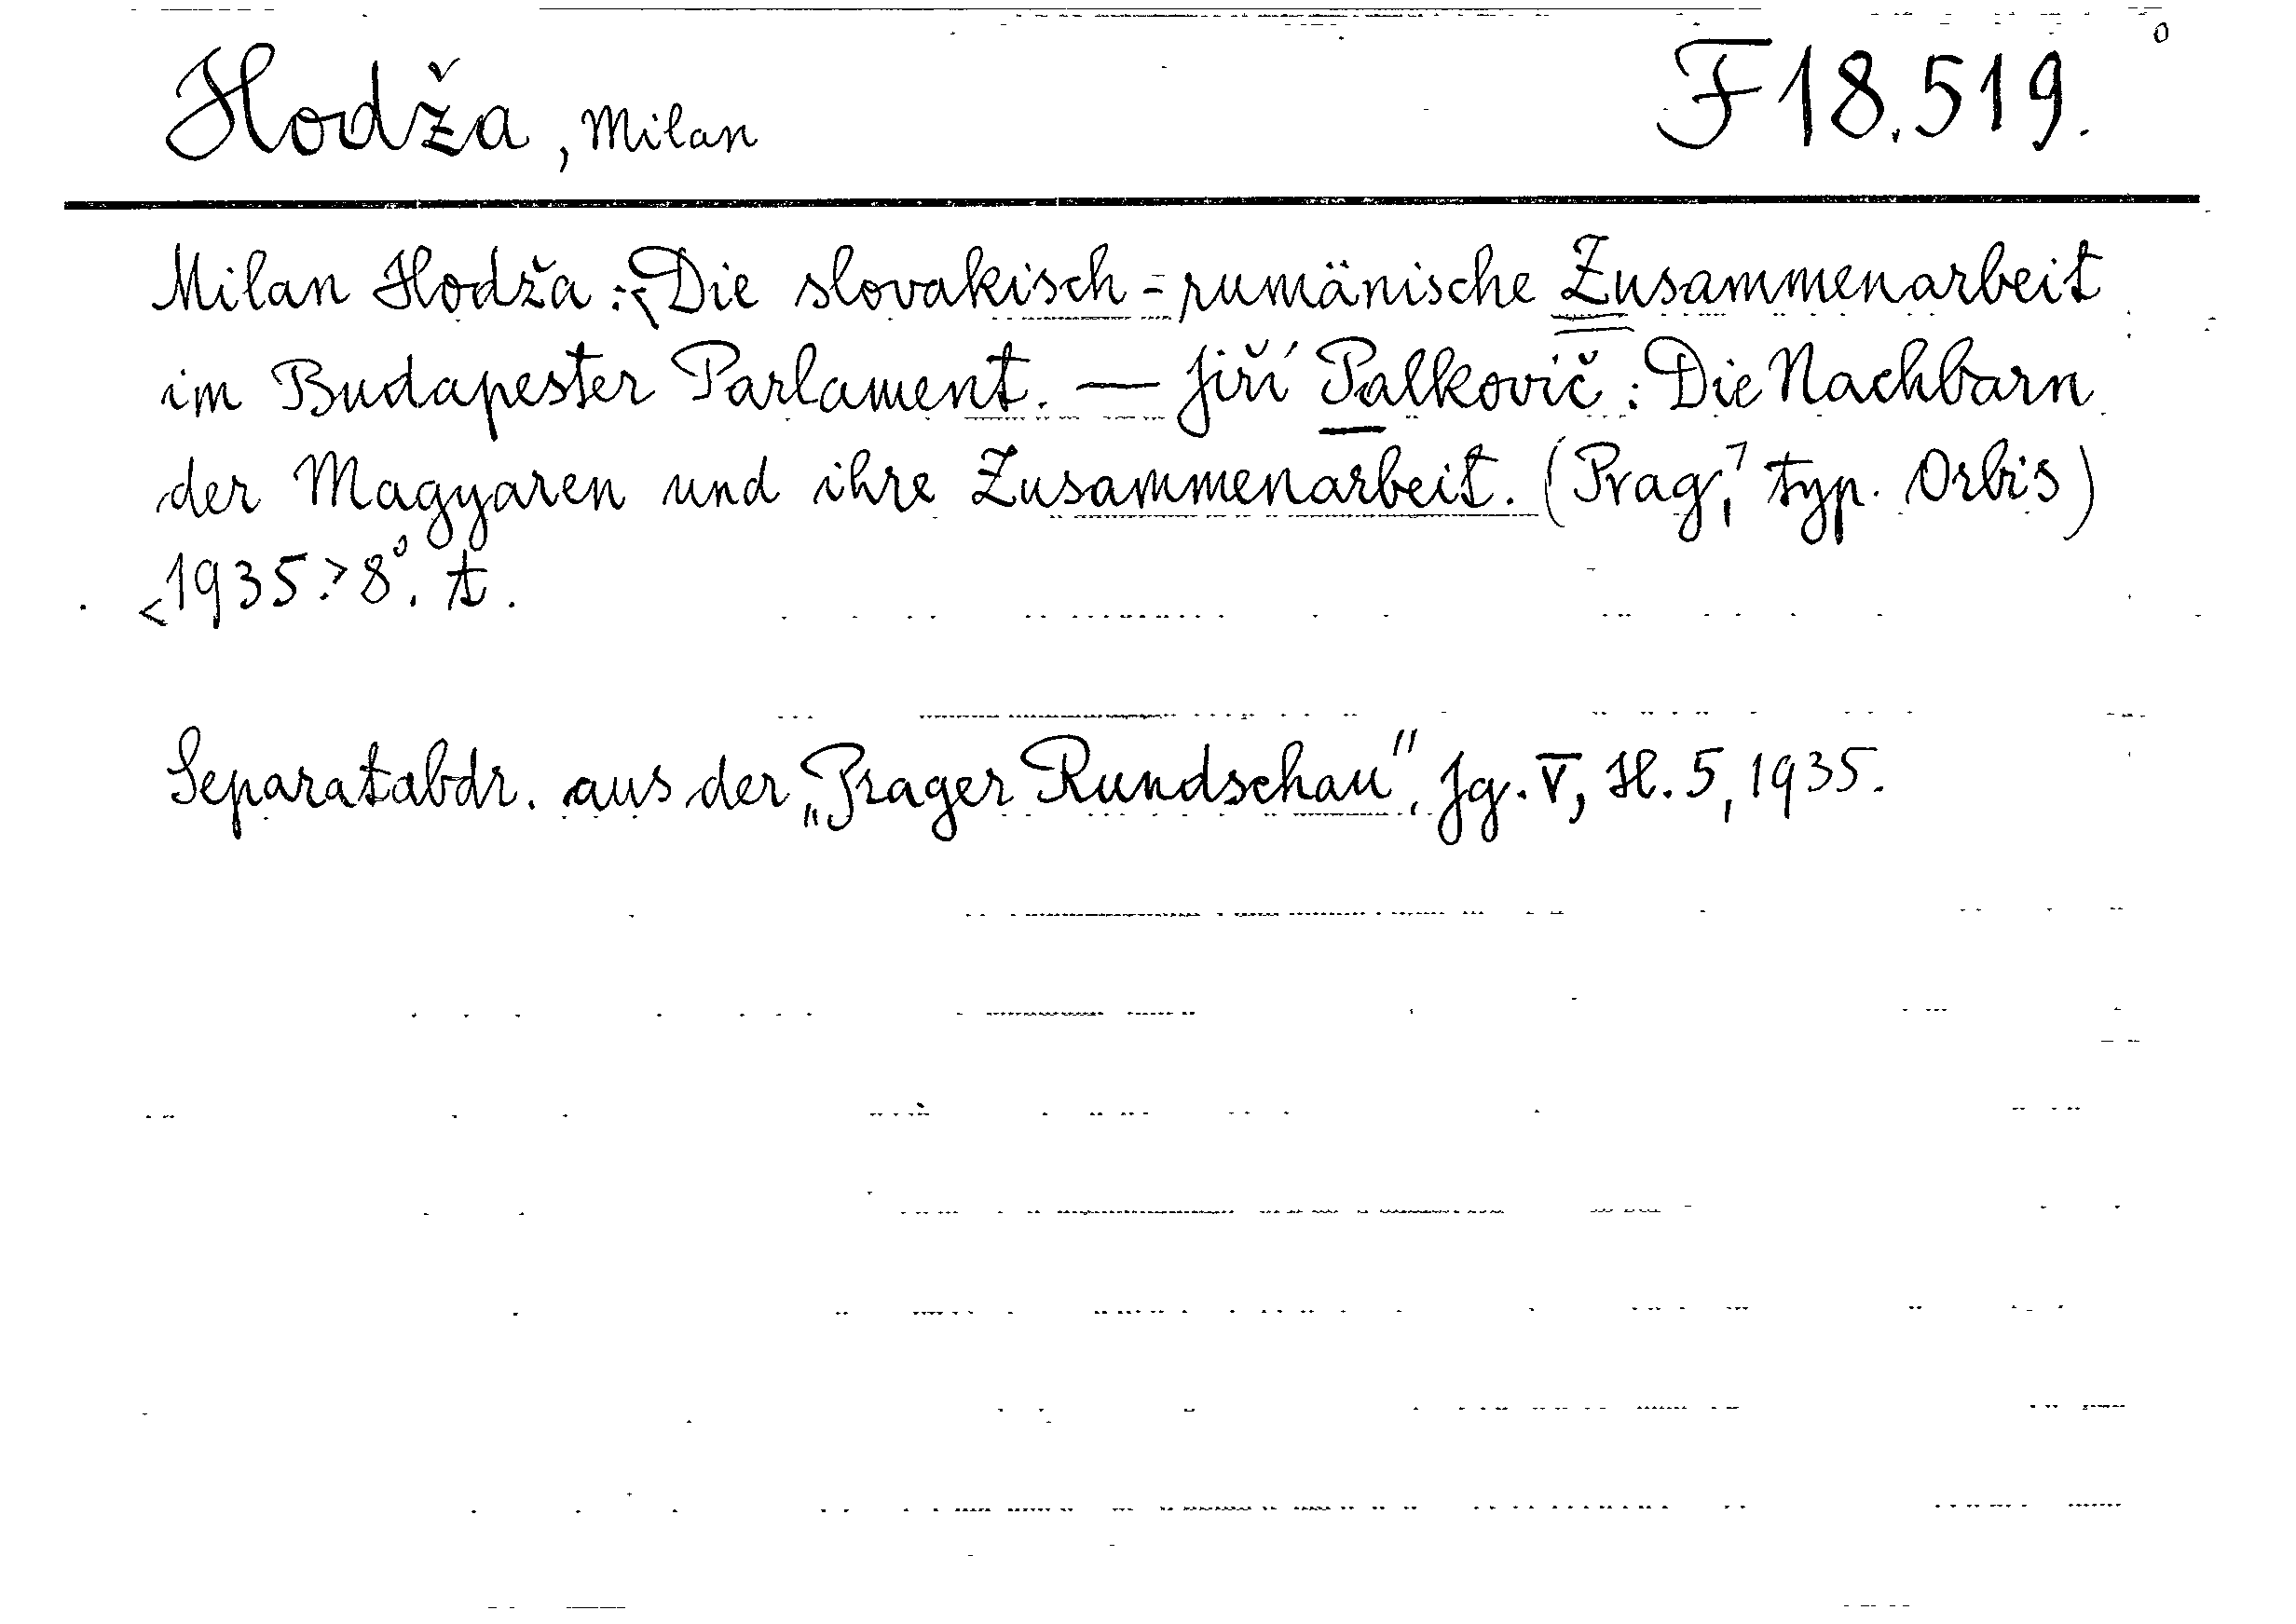 Hodža, Milan F 18.519.
Milan Hodža: Die slovakisch-rumänische Zusammenarbeit
im Budapester Parlament. — Jiří Palkovič: Die Nachbarn
der Magyaren und ihre Zusammenarbeit. (Prag, typ. Orbis)
<1935.> 8°. t.
Separatabdr. aus der „Prager Rundschau", Jg. V, H. 5, 1935.